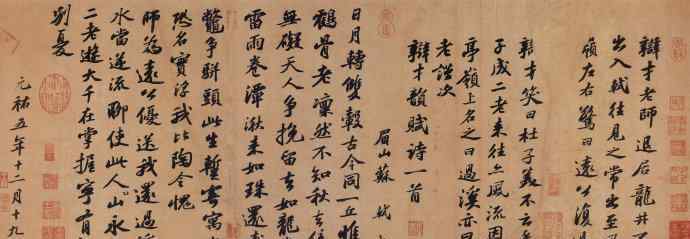 辯才老師退居龍井不
出入軾往見之常出至
嶺左右驚曰遠公復過
辯才笑曰杜子美不云
子成二老来往亦風流因
亭嶺上名之曰過溪亦曰
老謹次
辯才韻賦詩一首
眉山蘇軾
日月轉雙轂古今同一丘惟
鶴骨老凛然不知秋去住
無礙天人争挽留去如龍
雷雨卷潭湫来如珠還
鼈争駢頭此生蹔寄寓
恐名實浮我比陶令愧
師為遠公優送我還過
水當逆流聊使此人山永
二老遊大千在掌握寧有
别憂
元祐五年十二月十九